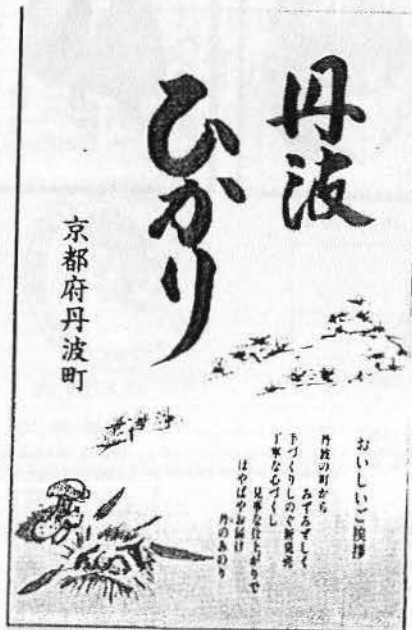 丹波
ひかり
京都府丹波町
おいしいご挨拶
丹波の町から
みずみずしく
手づくりしのぐ新発売
丁寧な心づくし
見事な仕上がりで
はやばやお届け
丹のみのり